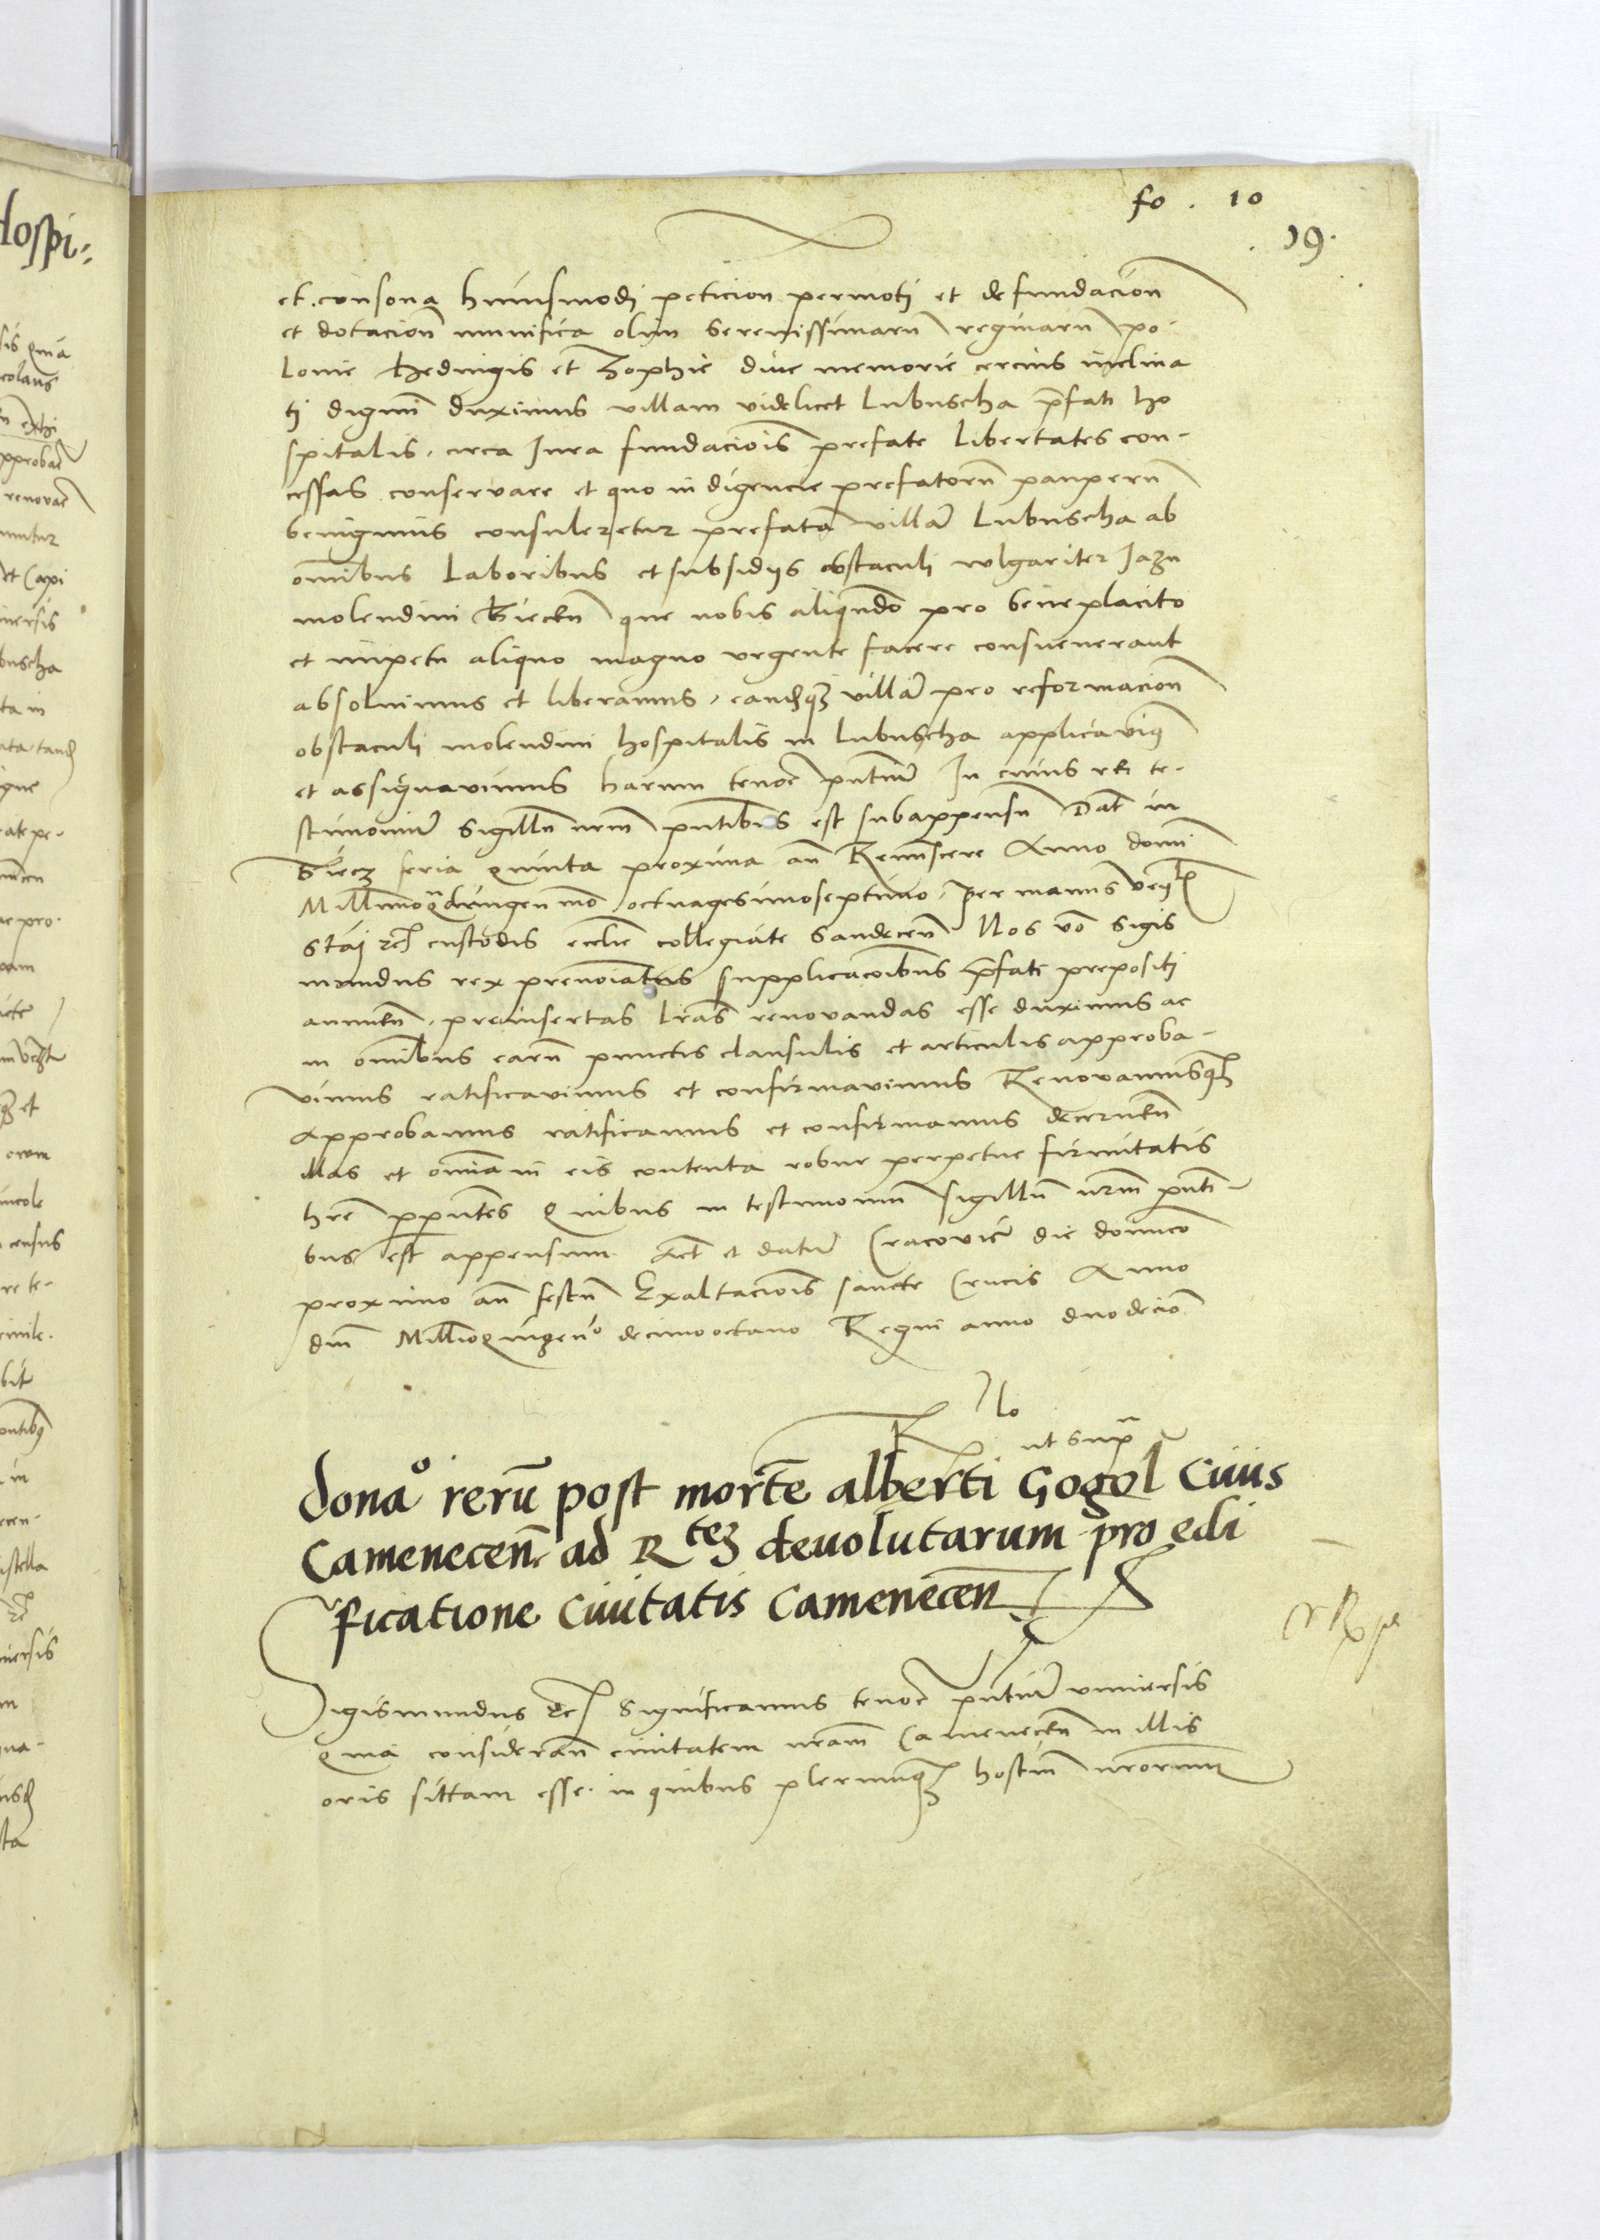 fo . 10
19.
et consona huiusmodi peticion permoti et de fundacion
et dotacion munifica olim serenissimarũ reginarũ po-
lonie Hedvigis et Zophie dive memorie cercius inclina
ti dignũ duximus villam videlicet Lubuscha p̃fati ho
spitalis circa Iura fundaciõis prefate libertates con-
cessas conservare et quo indigencie prefatorũ pauperũ
benignius consuleretur prefatã villã Lubuscha ab
omĩbus Laboribus et subsidijs obstaculi vulgariter Jazu
molendini Biecen̄ que nobis aliqñdo pro beneplacito
et impetu aliquo magno urgente facere consueverant
absolvimus et liberamus, eandẽqȝ villã pro reformacion
obstaculi molendini hospitalis in Lubuscha applicavimꝰ
et assignavimus harum tenore pñtiũ In cuius rei te-
stimoniũ sigillũ nrm̃ pñtibus est subappensũ Dat̃ in
Biecz feria quinta proxima añ Reminiscere Anno domĩ
Millimoquadringenmo octuagesimoseptimo. per manus
custodis ecclie collegiate Sandecen̄ Nos vo Sigis
mundus rex prenoĩatus supplicacõibus p̃fati prepositi
annuen̄. preinsertas lr̃as renovandas esse duximus ac
in omĩbus earũ punctis clausulis et articulis approba-
vimus ratificavimus et confirmavimus Renovamusqȝ
Approbamus ratificamus et confirmamus decernen̄
illas et omĩa in eis contenta robur perpetue firmitatis
hr̃e p̱pñtes Quibus in testimoniũ sigillũ nrm̃ pñti-
bus est appensum Act̃ et datũ Cracovie die domĩco
proximo añ festũ Exaltaciõis sancte Crucis Anno
dñi Millioquingenᵒ decimooctavo Regni anno duodecĩo
Rlo
ut supᵃ
donaᵒ rerũ post mortẽ alberti Gogol Civis
Camenecen̄ ad Rteȝ devolutarum pro edi
ficatione Civitatis Camenecen̄
Sigismundus ec̃ Significamus tenore pñtiũ universis
Quia considerañ civitatem nrãm Camenecen̄ in illis
oris sittam esse in quibus plerunqȝ hostiũ nrorum